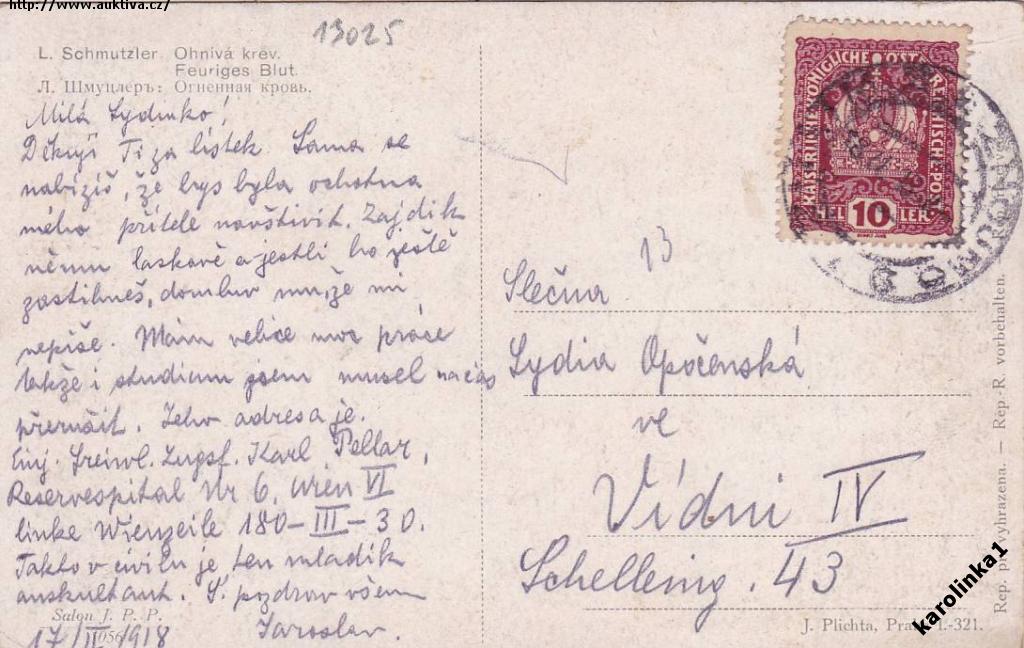 http://www.auktiva.cz/
13025
L. Schmutzler Ohnivá krev.
Feuriges Blut.
Л. Шмуцлеръ: Огненная кровь.
Milá Lydinko!
Děkuji Ti za lístek. Sama se
nabízíš, že bys byla ochotna
mého přítele navštívit. Zajdi k
němu laskavě a jestli ho ještě
zastihneš, domluv mu, že mi
nepíše. Mám velice moc práce
takže i studium jsem musel na čas
přerušit. Jeho adresa je.
Einj. Freiwl. Zugsf. Karl Pellar,
Reservespital Nr 6, Wien VI
linke Wienzeile 180-III-30.
Takto v civilu je ten mladík
auskultant. S. pozdrav všem
Jaroslav.
17/II 1918
Salon J. P. P.
1056
KAISERLICHE KÖNIGLICHE ÖSTERREICHISCHE POST
HELLER
10
13
Slečna
Lydia Opočenská
ve
Vídni IV
Schelleing. 43
Rep. vyhrazena. — Rep.-R. vorbehalten.
J. Plichta, 1.-321.
karolinka1